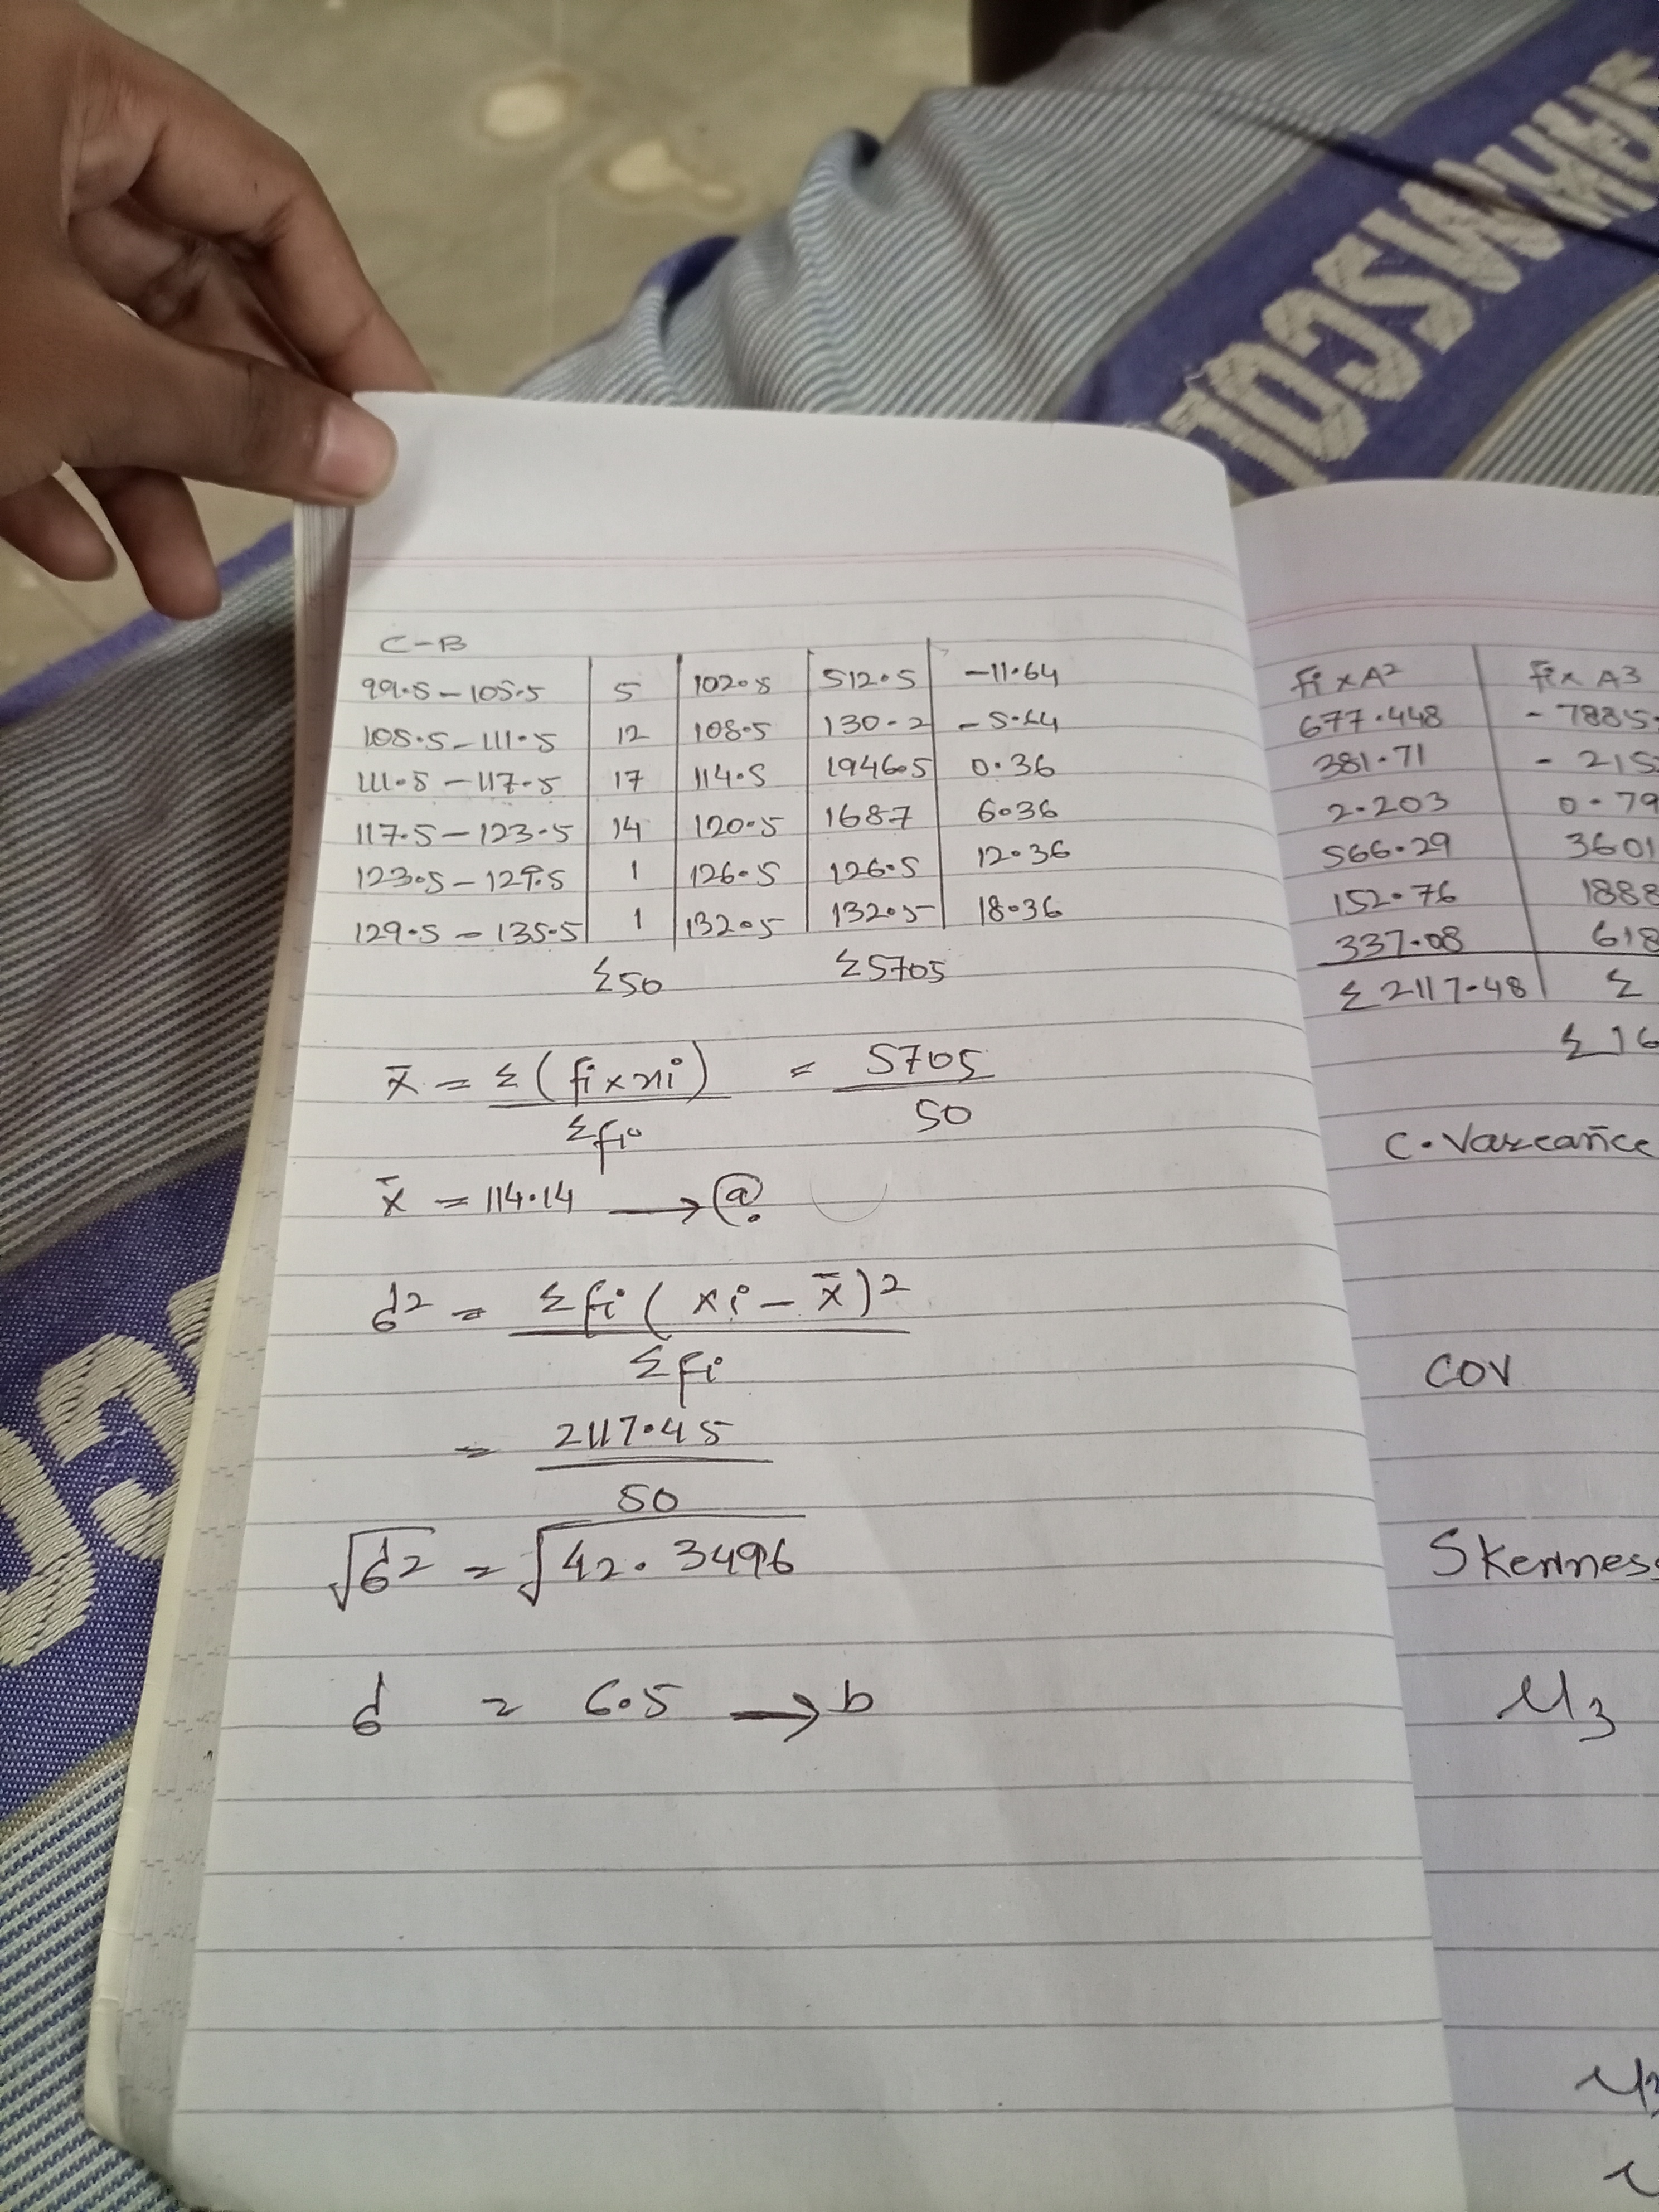 C-B
99.5 - 105.5 5 102.5 512.5 -11.64
105.5 - 111.5 12 108.5 130.2 -5.64
111.5 - 117.5 17 114.5 1946.5 0.36
117.5 - 123.5 14 120.5 1687 6.36
123.5 - 129.5 1 126.5 126.5 12.36
129.5 - 135.5 1 132.5 132.5 18.36
Σ50 Σ5705
x̄ = Σ(fi×xi) = 5705
Σfi 50
x̄ = 114.14 → ⓐ.
σ² = Σfi(xi - x̄)²
Σfi
= 2117.45
50
√σ² = √42.3496
σ = 6.5 → b
fi×A² fi×A3
677.448 - 7885.
381.71 - 215
2.203 0.79
566.29 3601
152.76 1888
337.08 618
Σ2117.48 Σ
Σ16
C. Vareance
COV
Skenness
μ3